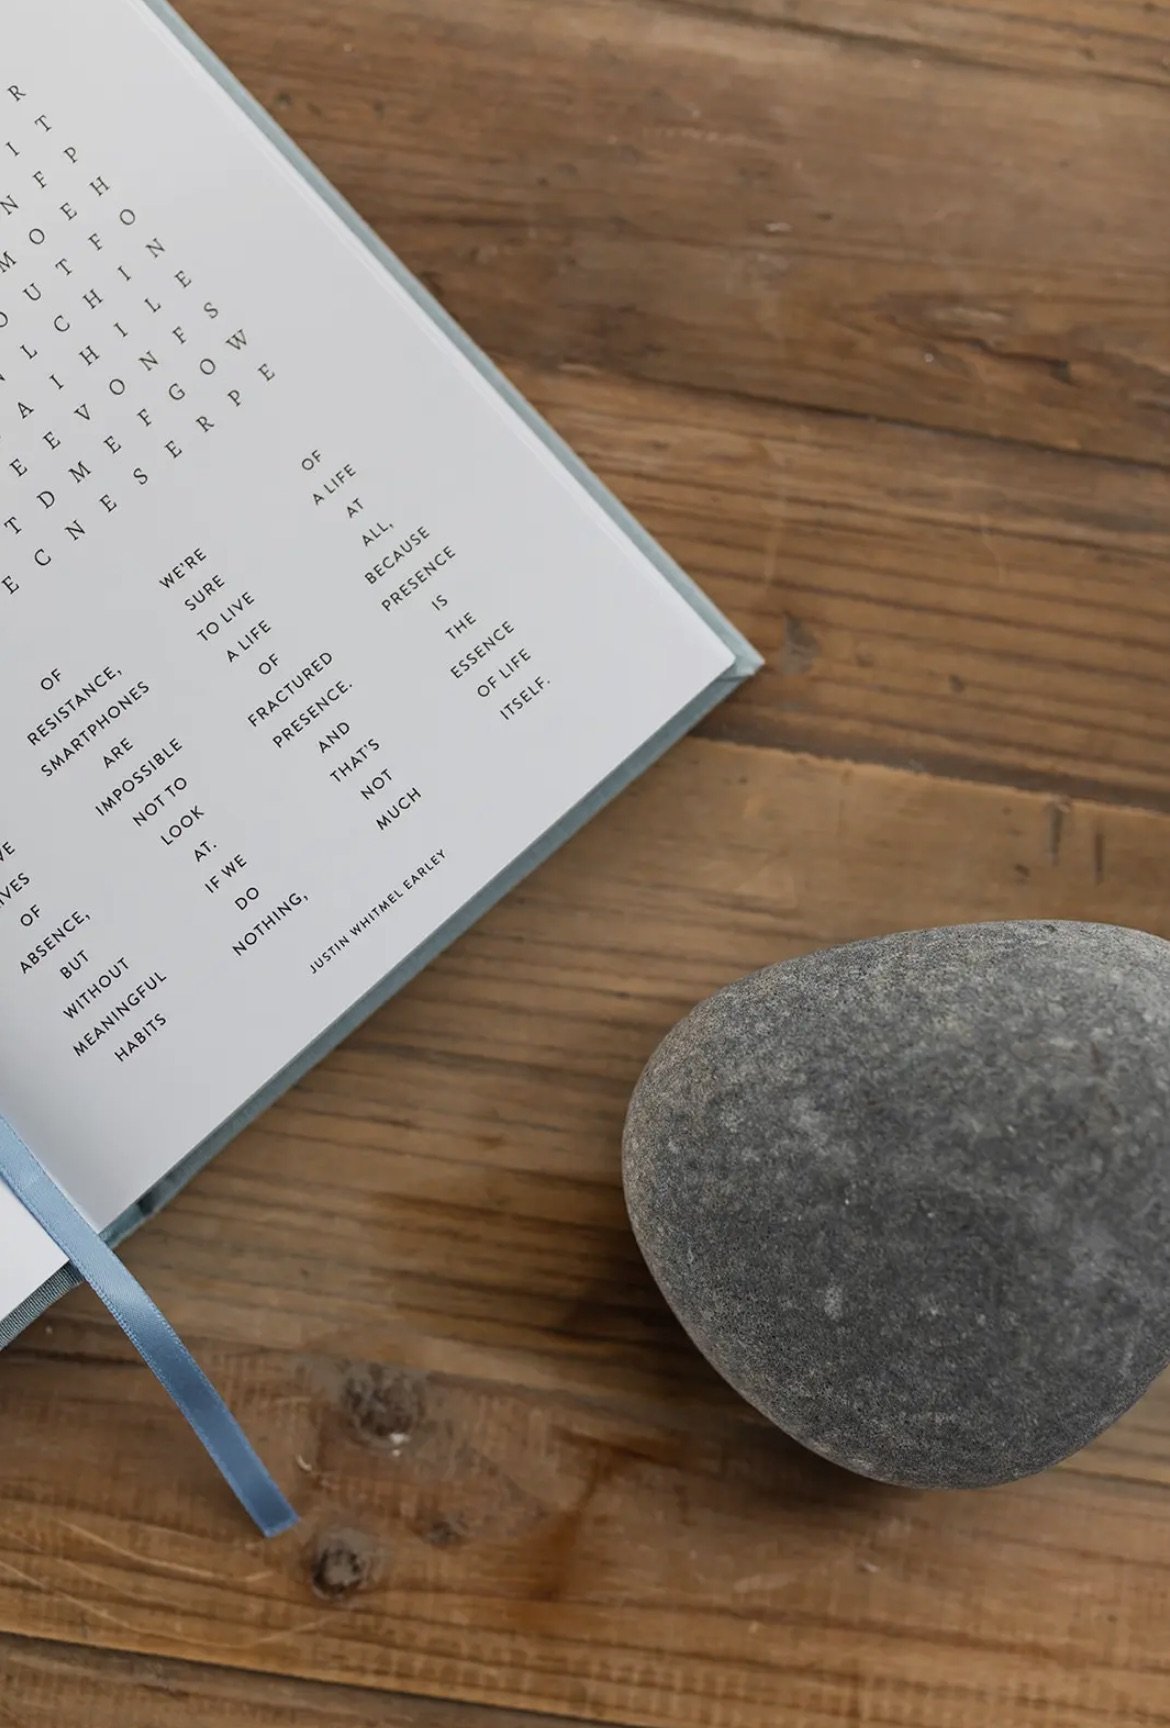 R
I T
N F P
M O E H
U T F O
L C H I N
A I H I L E
E E V O N F S
T D M E F G O W
E C N E S E R P E
OF
ABSENCE,
BUT
WITHOUT
MEANINGFUL
HABITS
OF
RESISTANCE,
SMARTPHONES
ARE
IMPOSSIBLE
NOT TO
LOOK
AT.
IF WE
DO
NOTHING,
WE'RE
SURE
TO LIVE
A LIFE
OF
FRACTURED
PRESENCE.
AND
THAT'S
NOT
MUCH
OF
A LIFE
AT
ALL,
BECAUSE
PRESENCE
IS
THE
ESSENCE
OF LIFE
ITSELF.
JUSTIN WHITMEL EARLEY